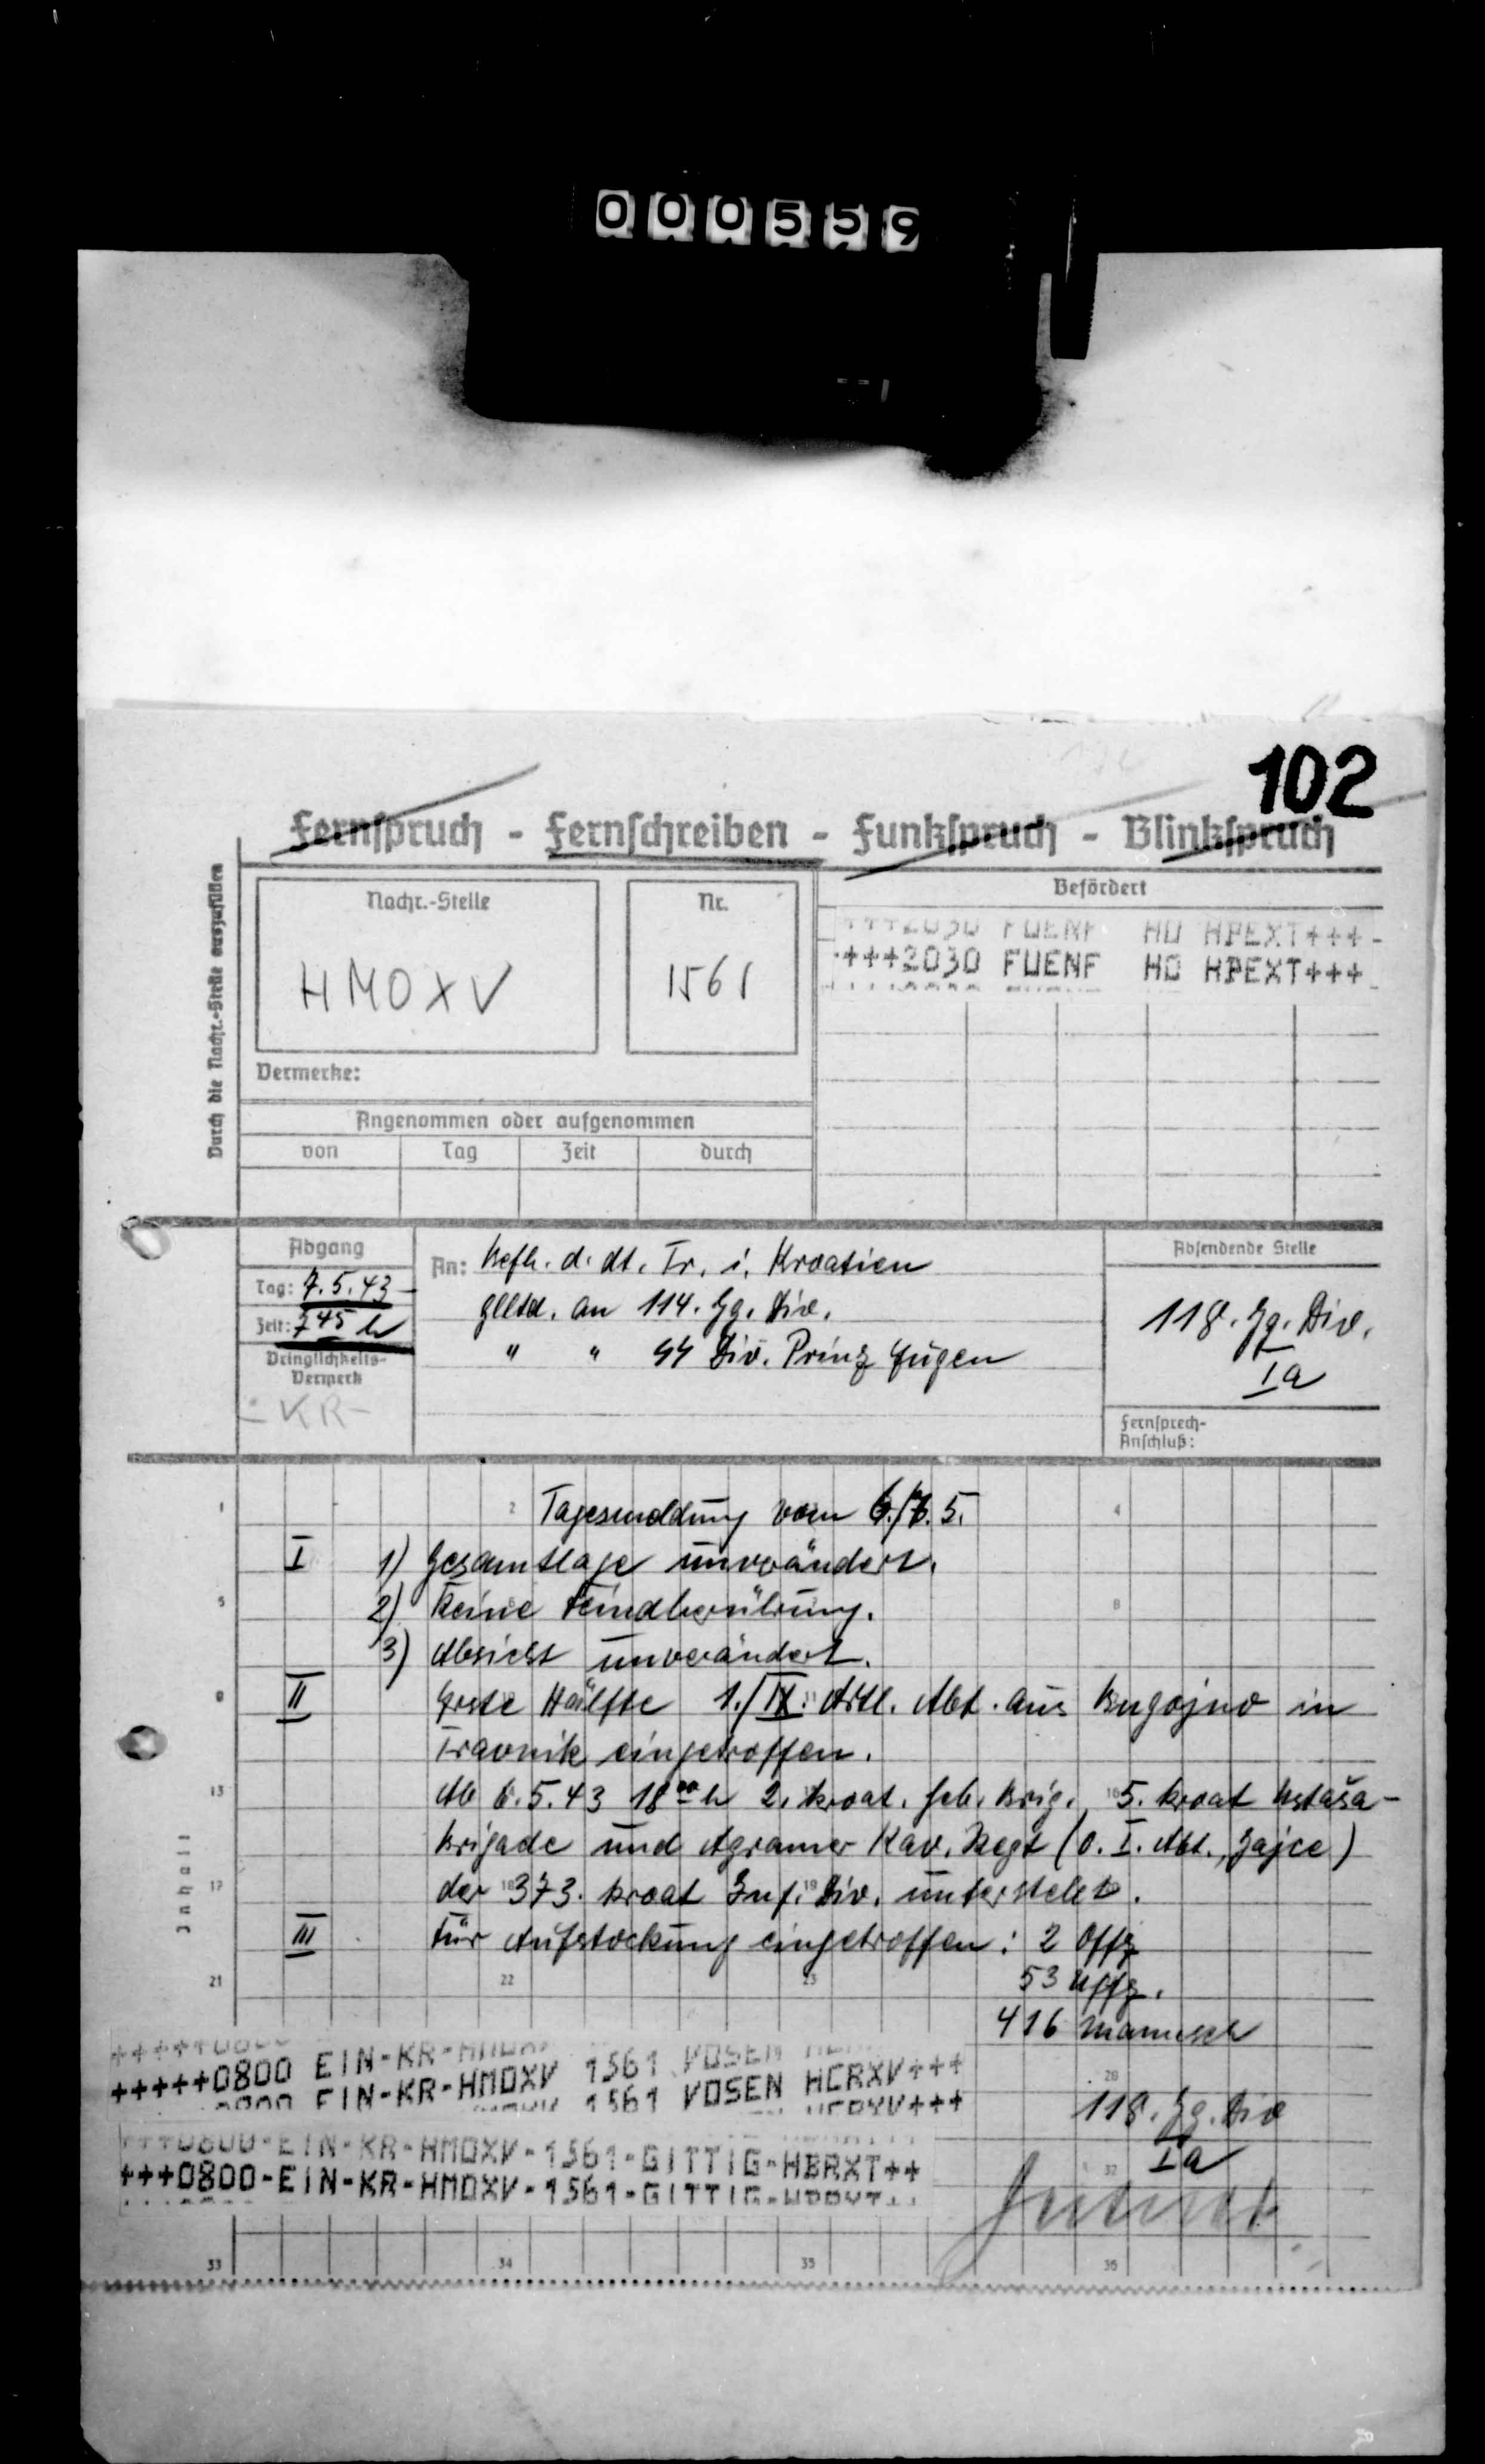 000559
102
Fernspruch - Fernschreiben - Funkspruch - Blinkspruch
Durch die Nachr.-Stelle auszufüllen
Nachr.-Stelle
HMOXV
Nr.
1561
Befördert
+++2030 FUENF HO HPEXT+++
+++2030 FUENF HO HPEXT+++
Vermerke:
Angenommen oder aufgenommen
von Tag Zeit durch
Abgang
Tag: 7.5.43
Zeit: 7 45 h
Dringlichkeits-
Vermerk
-KR-
An: Befh. d. dt. Tr. i. Kroatien
glltd. an 114. Jg. Div.
" " SS Div. Prinz Eugen
Absendende Stelle
118. Jg. Div.
Ia
Fernsprech-
Anschluß:
Inhalt
Tagesmeldung vom 6./7. 5.
I 1) Gesamtlage unverändert.
2) Keine Feindberührung.
3) Absicht unverändert.
II Erste Hälfte 1./IV. Artl. Abt. aus Bugojno in
Travnik eingetroffen.
Ab 6.5.43 18 00 h 2. kroat. Geb. Brig., 5. kroat Ustaša-
brigade und Agramer Kav. Regt (o. I. Abt., Jajce)
der 373. kroat Inf. Div. unterstellt.
III Für Aufstockung eingetroffen: 2 Offz
53 Uffz.
416 Mannsch
+++++0800 EIN-KR-HMOXV 1561 VOSEN HCRXV+++
+++0800-EIN-KR-HMOXV-1561-GITTIG-HBRXT++
118. Jg. Div
Ia
1 2 4
5 8
9
13 16
17 18 19
21 22 23
28
32
33 34 35 36